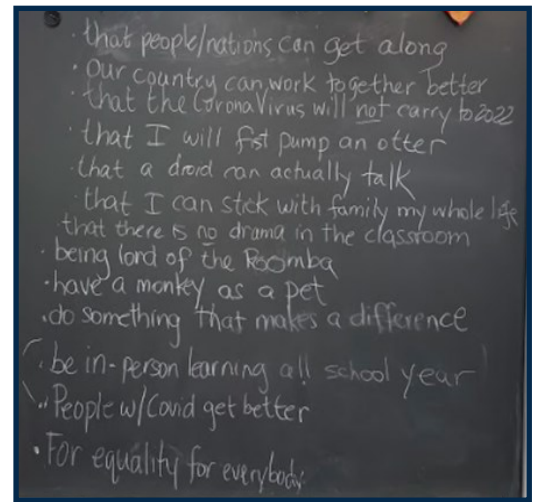 · that people/nations can get along
· Our country can work together better
· that the CoronaVirus will not carry to 2022
· that I will fist pump an otter
· that a droid can actually talk
· that I can stick with family my whole life
that there is no drama in the classroom
· being lord of the Roomba
· have a monkey as a pet
· do something that makes a difference
· be in-person learning all school year
· People w/Covid get better
· For equality for everybody.